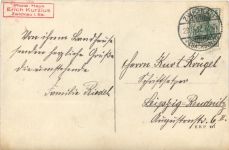 Photogr. Haus
Erich Kurzius
Zwickau i. Sa.
Von ihrem Landhause
senden herzliche Grüße
die umstehende
Familie Riedel
Herrn Kurt Krügel
Schriftsetzer
Leipzig-Reudnitz
Augustenstr. 6 II